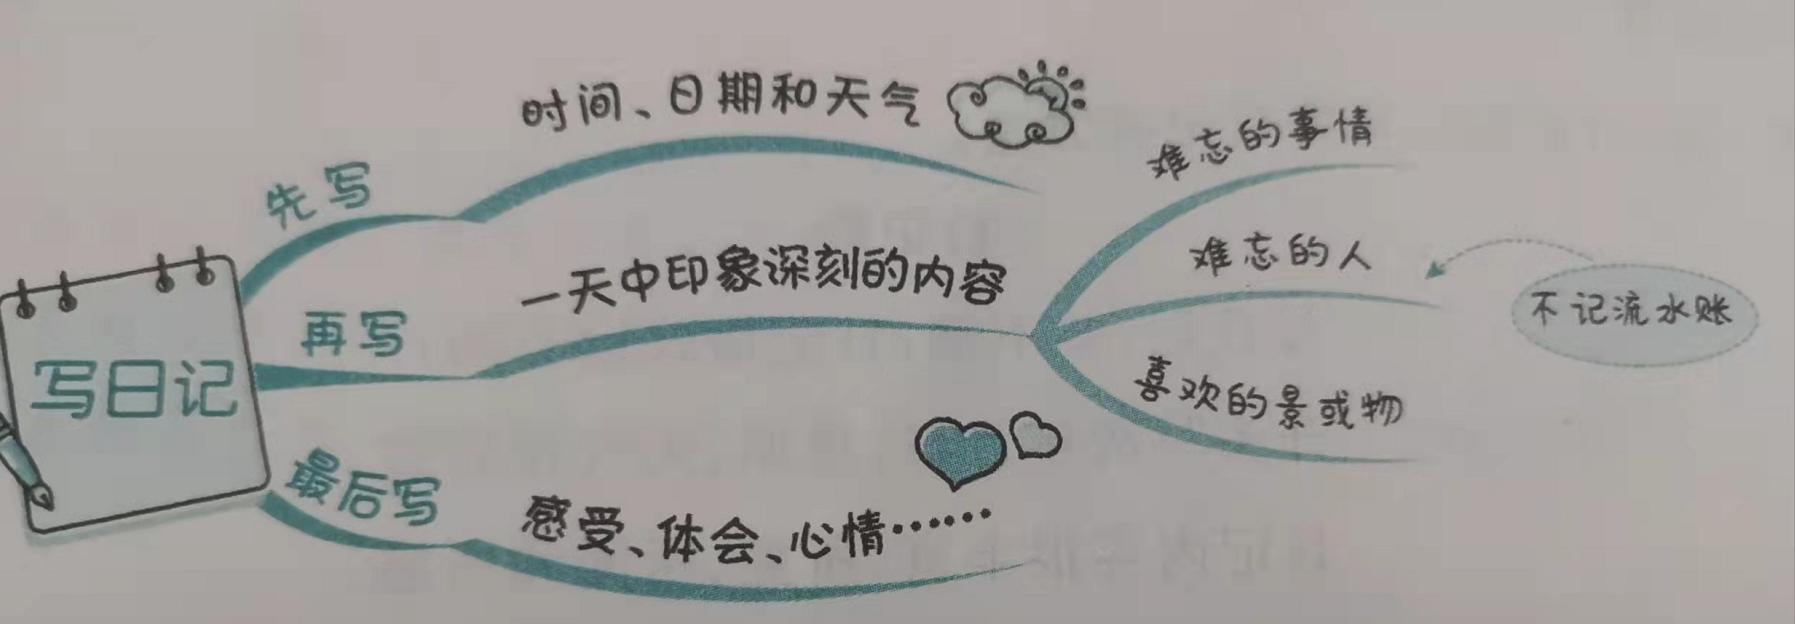 写日记
先写
时间、日期和天气
再写
一天中印象深刻的内容
难忘的事情
难忘的人
喜欢的景或物
不记流水账
最后写
感受、体会、心情……